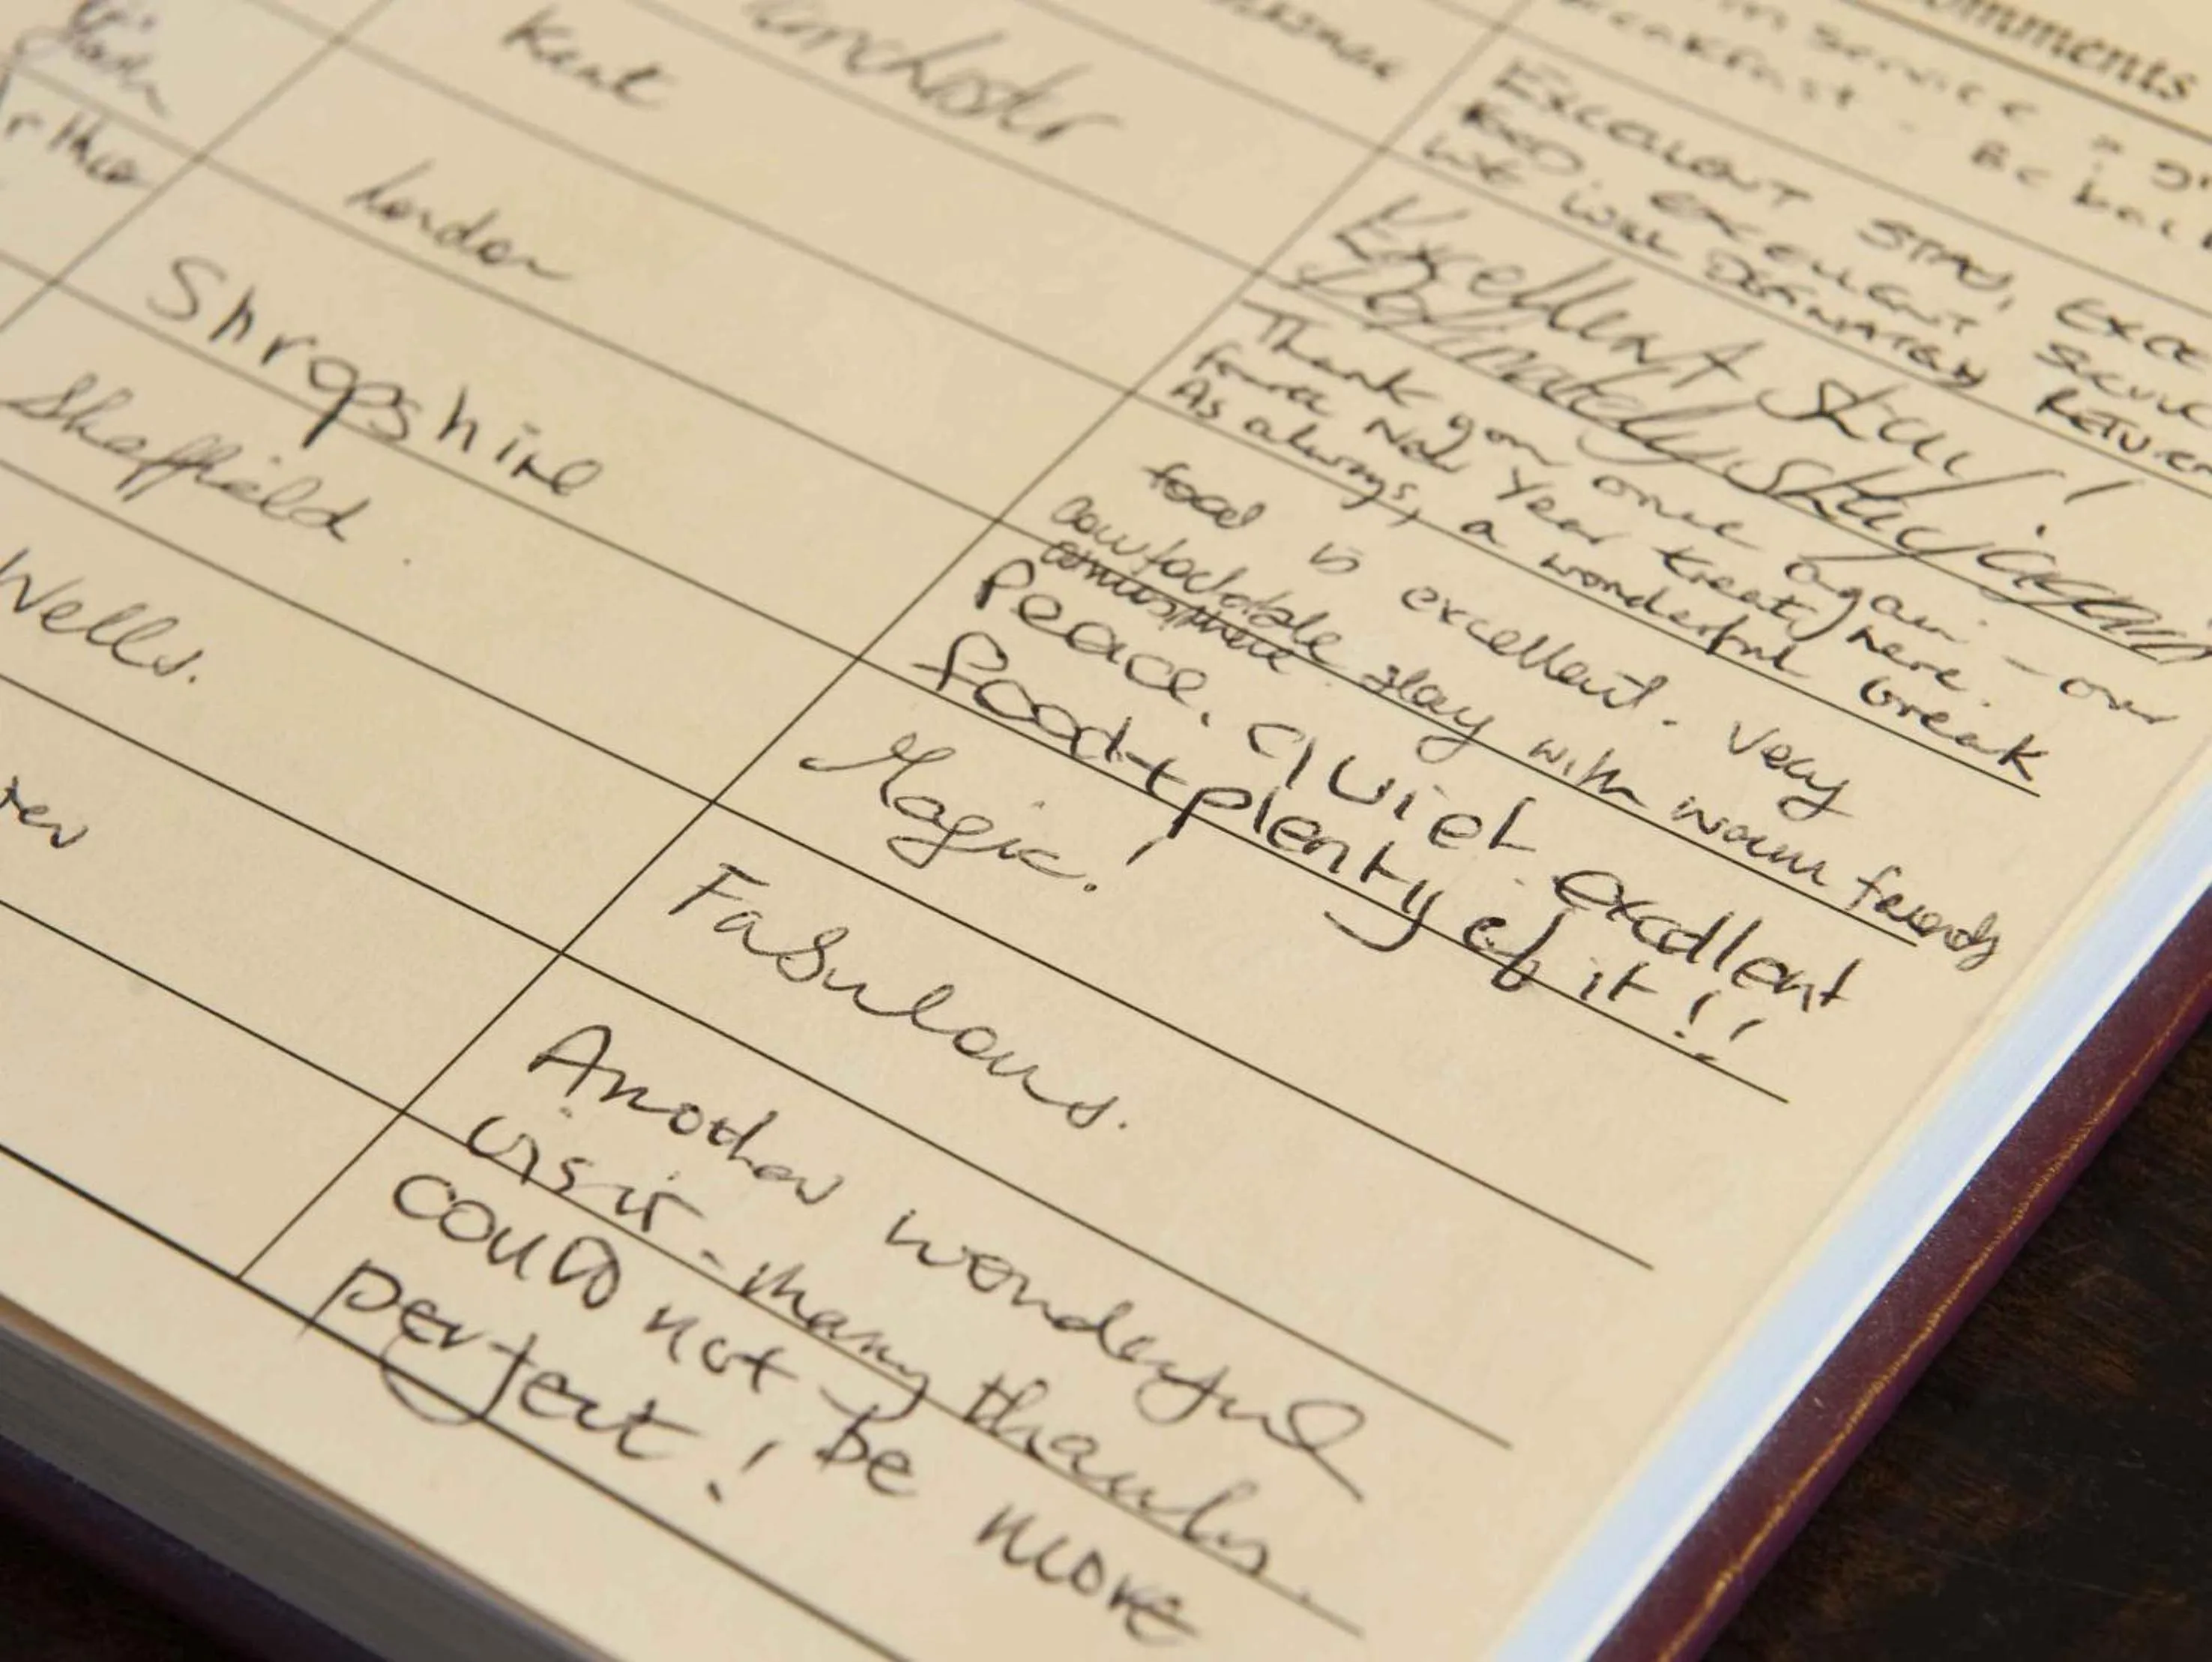 omments
Be back
Kent
EXCELLENT STAY, EXCE
FOOD, EXCELLENT SERVICE
WE WILL DEFINATELY RETURN
London
Excellent stay!
Definately stay again
Shropshire
Thank you once again - our
New Year treat, here.
As always, a wonderful break
Sheffield.
food is excellent. Very
comfortable stay with warm friends
Wells.
Peace, quiet excellent
food + plenty of it!!
Magic!
Fabulous.
Another wonderful
visit - many thanks.
COULD not be more
perfect!